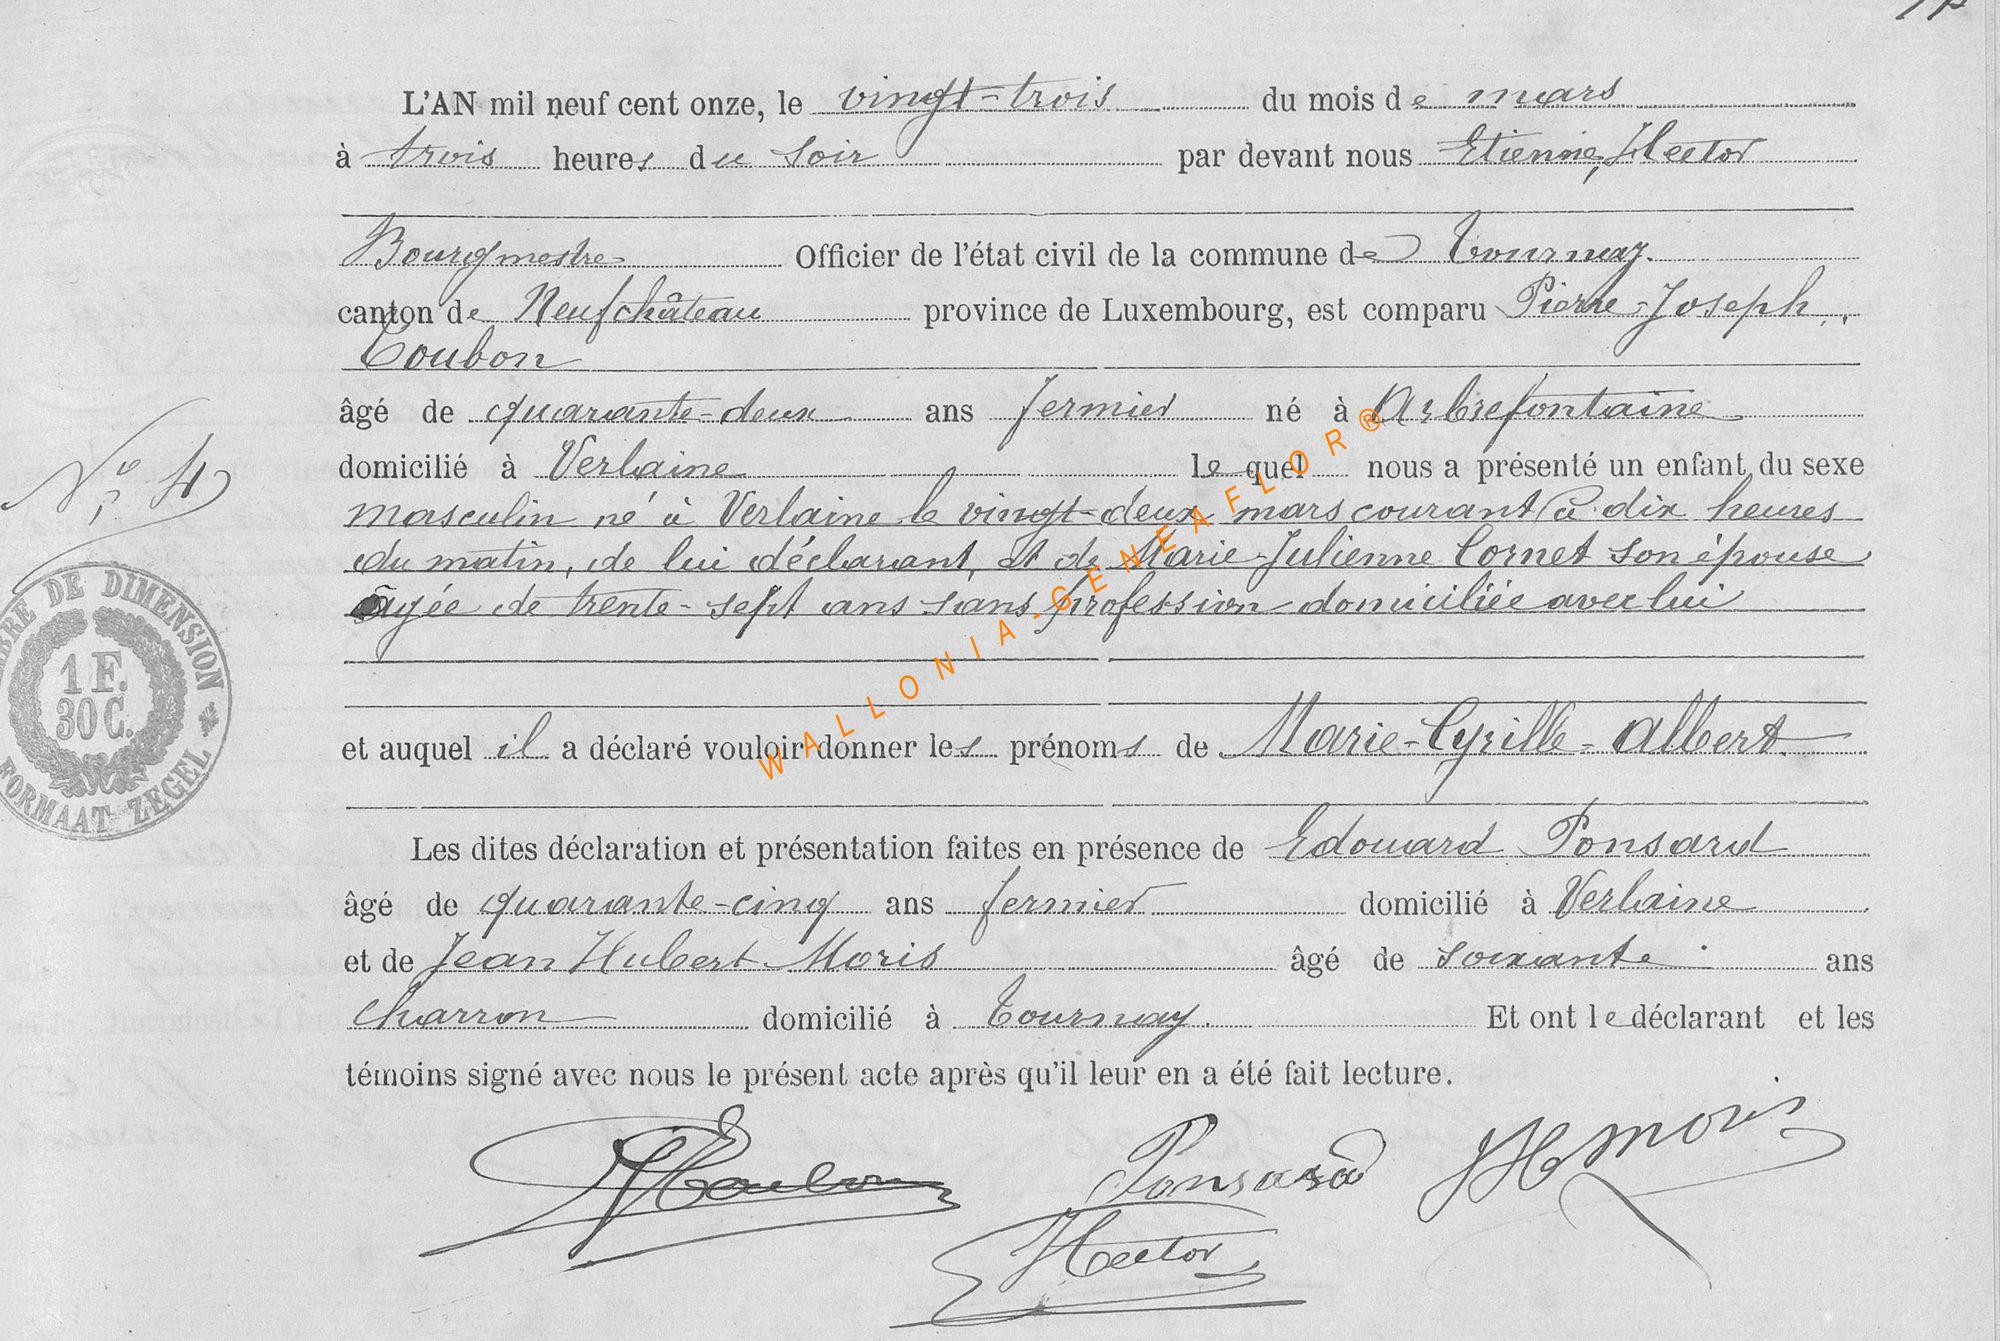 L'AN mil neuf cent onze, le vingt-trois du mois de mars
à trois heures du soir par devant nous Etienne, Hector
Bourgmestre Officier de l'état civil de la commune de Tournay.
canton de Neufchâteau province de Luxembourg, est comparu Pierre-Joseph
Toubon
âgé de quarante-deux ans fermier né à Arbrefontaine
domicilié à Verlaine lequel nous a présenté un enfant du sexe
masculin né à Verlaine le vingt-deux mars courant à dix heures
du matin, de lui déclarant, et de Marie-Julienne Cornet son épouse
agée de trente-sept ans sans profession domiciliée avec lui
et auquel il a déclaré vouloir donner les prénoms de Marie-Cyrille-Albert.
Les dites déclaration et présentation faites en présence de Edouard Ponsard
âgé de quarante-cinq ans fermier domicilié à Verlaine
et de Jean Hubert Moris âgé de soixante ans
charron domicilié à Tournay. Et ont le déclarant et les
témoins signé avec nous le présent acte après qu'il leur en a été fait lecture.
Toubon Ponsard JH Moris
Hector
No 4
TIMBRE DE DIMENSION
1 F.
30 C.
FORMAAT ZEGEL
WALLONIA-GENEAFLOR®